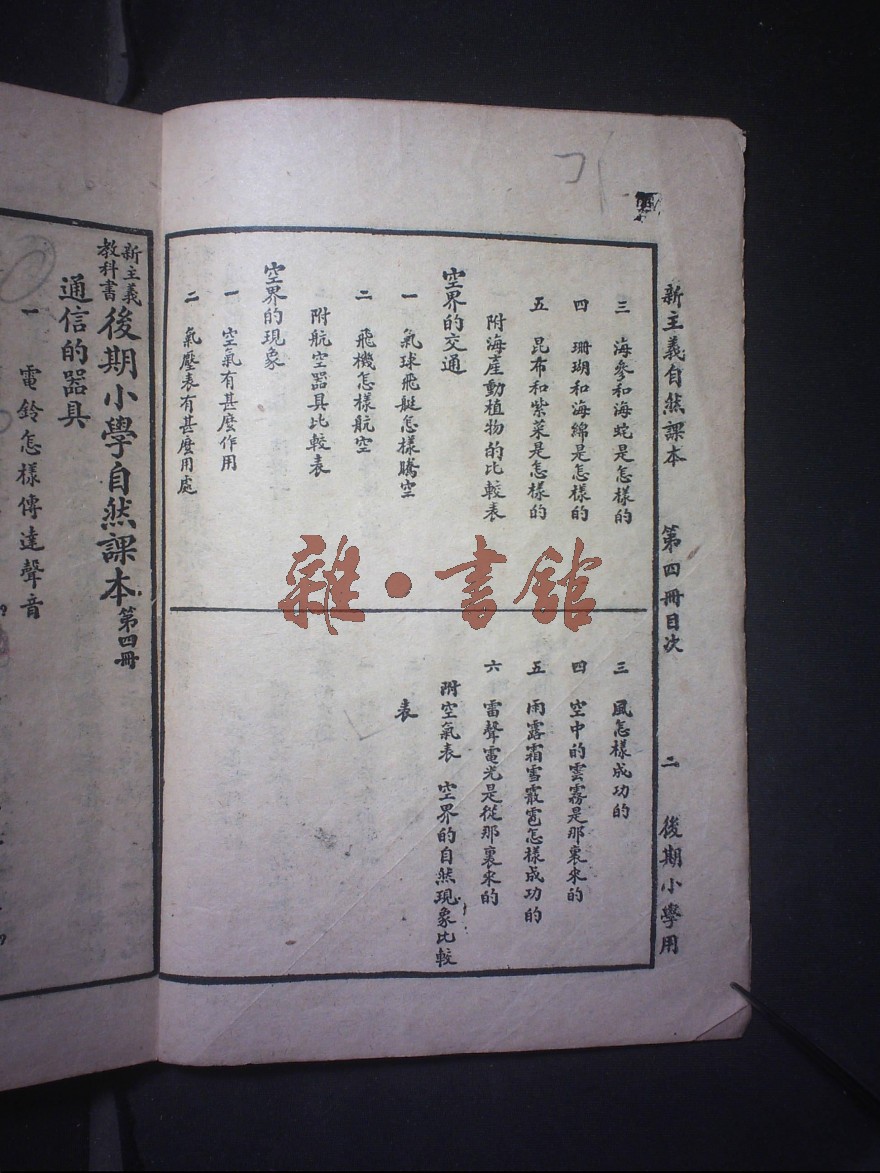 新主義自然課本 第四冊目次 二 後期小學用
三 海參和海蛇是怎樣的
四 珊瑚和海綿是怎樣的
五 昆布和紫菜是怎樣的
附海產動植物的比較表
空界的交通
一 氣球飛艇怎樣騰空
二 飛機怎樣航空
附航空器具比較表
空界的現象
一 空氣有甚麼作用
二 氣壓表有甚麼用處
三 風怎樣成功的
四 空中的雲霧是那裏來的
五 雨露霜雪霰雹怎樣成功的
六 雷聲電光是從那裏來的
附空氣表 空界的自然現象比較
表
雜·書館
新主義
教科書
後期小學自然課本 第四冊
通信的器具
一 電鈴怎樣傳達聲音